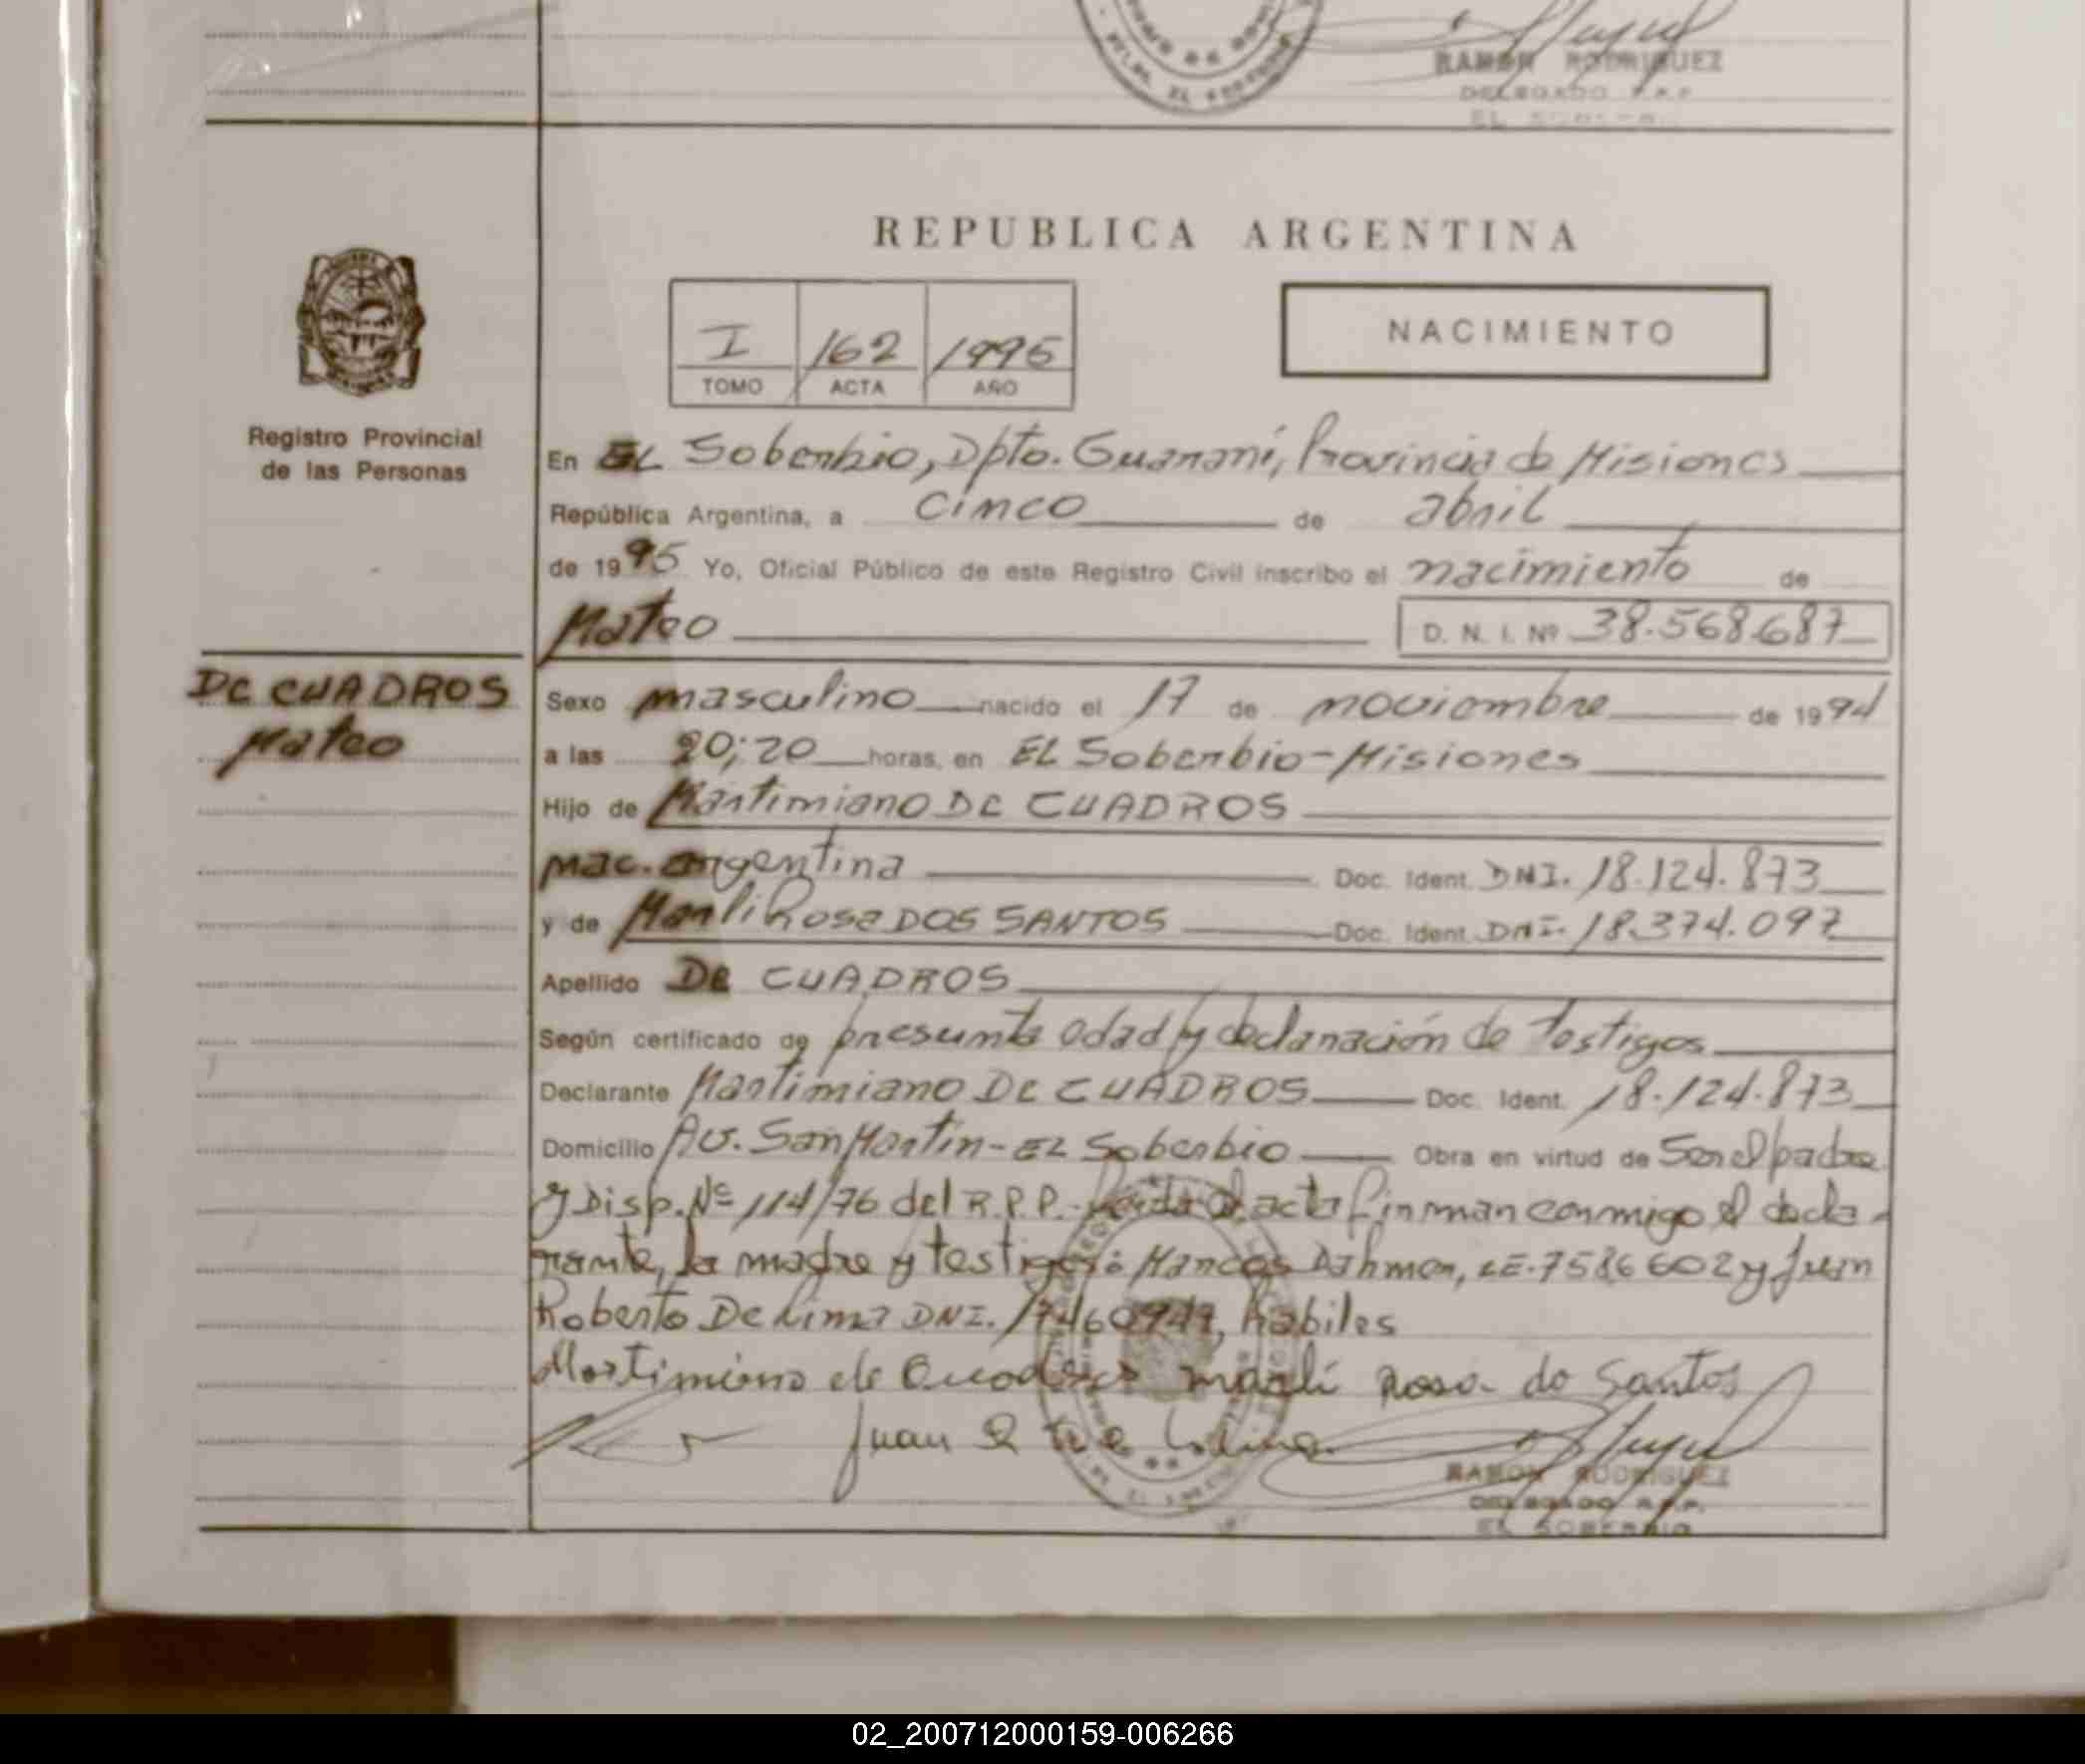 RAMON RODRIGUEZ
DELEGADO R.P.P.
REPUBLICA ARGENTINA
I 162 1995
TOMO ACTA AÑO
NACIMIENTO
Registro Provincial
de las Personas
En EL Soberbio, Dpto. Guaraní, Provincia de Misiones
República Argentina, a cinco de abril
de 1995 Yo, Oficial Público de este Registro Civil inscribo el nacimiento de
Mateo D. N. I. Nº 38.568.687
DE CUADROS
Mateo
Sexo masculino nacido el 17 de noviembre de 1994
a las 20;20 horas, en EL Soberbio-Misiones
Hijo de Martimiano DE CUADROS
nac. argentina Doc. Ident. DNI. 18.124.873
y de Marli Rosa DOS SANTOS Doc. Ident. DNI. 18.374.097
Apellido DE CUADROS
Según certificado de presunta edad y declaración de testigos
Declarante Martimiano DE CUADROS Doc. Ident. 18.124.873
Domicilio Av. San Martín-EL Soberbio Obra en virtud de ser el padre
y Disp. Nº 114/76 del R.P.P. Leida el acta firman conmigo el decla-
rante, la madre y testigos: Marcos Dahmer, LE.7586602 y Juan
Roberto De Lima DNI. hábiles
Martimiano de Cuadros marli Rosa do Santos
Juan
RAMON RODRIGUEZ
DELEGADO R.P.P.
EL SOBERBIO
02_200712000159-006266